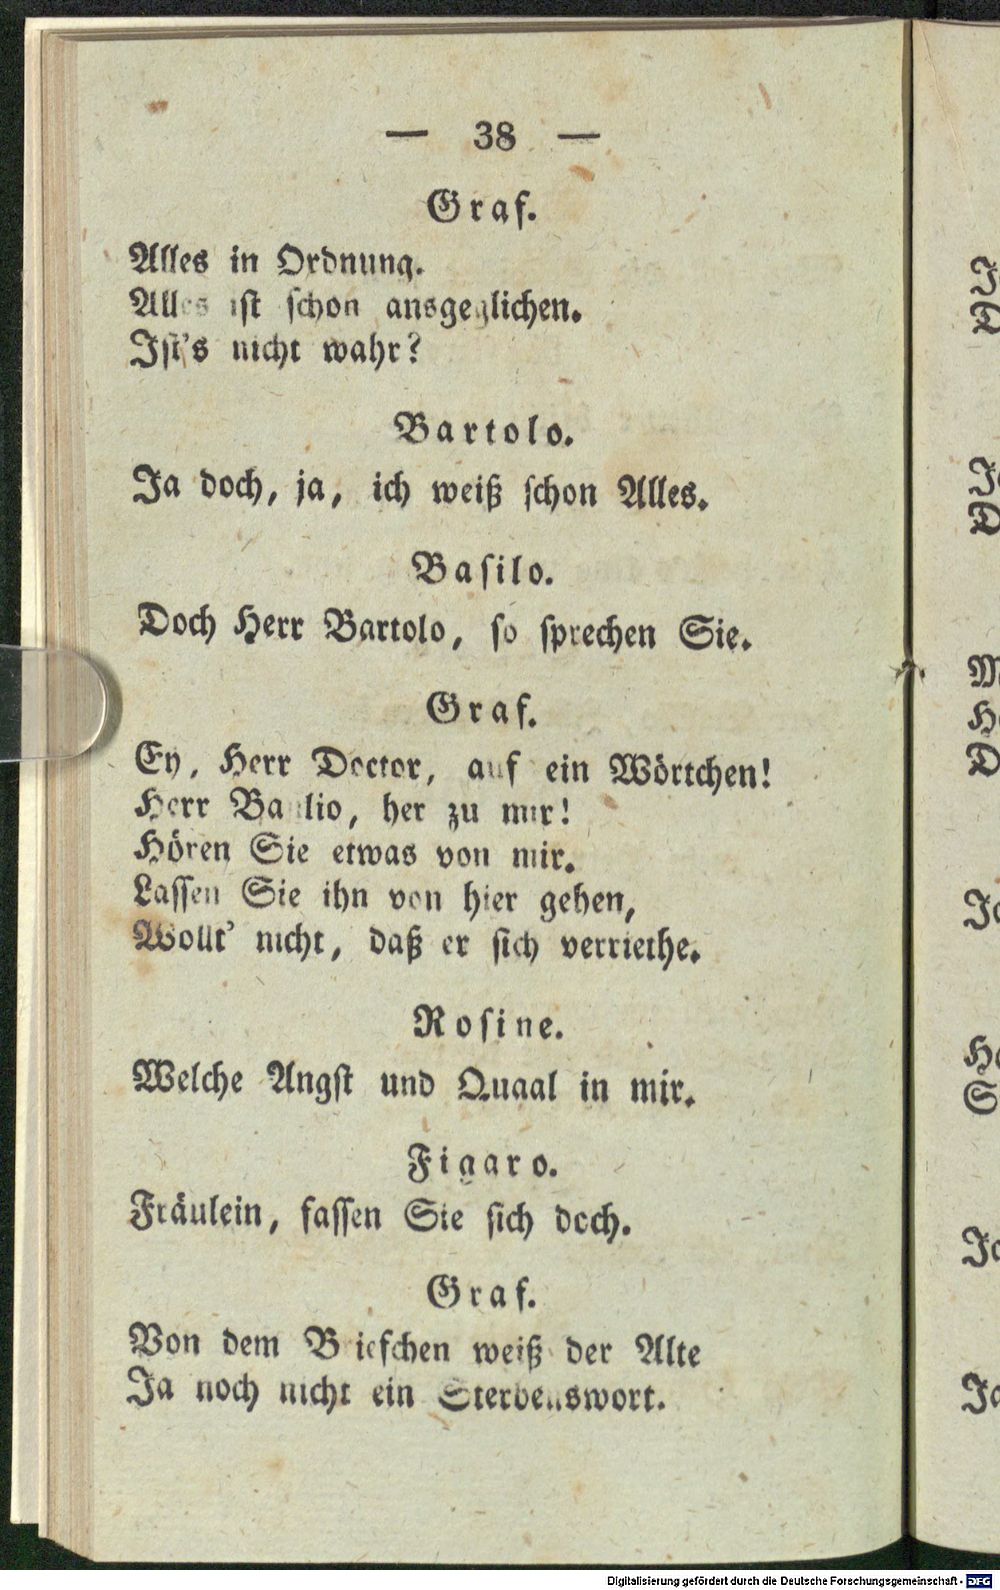 — 38 —
Graf.
Alles in Ordnung.
Alles ist schon ausgeglichen.
Ist's nicht wahr?
Bartolo.
Ja doch, ja, ich weiß schon Alles.
Basilo.
Doch Herr Bartolo, so sprechen Sie.
Graf.
Ey, Herr Doctor, auf ein Wörtchen!
Herr Basilio, her zu mir!
Hören Sie etwas von mir.
Lassen Sie ihn von hier gehen,
Wollt' nicht, daß er sich verriethe.
Rosine.
Welche Angst und Quaal in mir.
Figaro.
Fräulein, fassen Sie sich doch.
Graf.
Von dem Briefchen weiß der Alte
Ja noch nicht ein Sterbenswort.
Digitalisierung gefördert durch die Deutsche Forschungsgemeinschaft - DFG